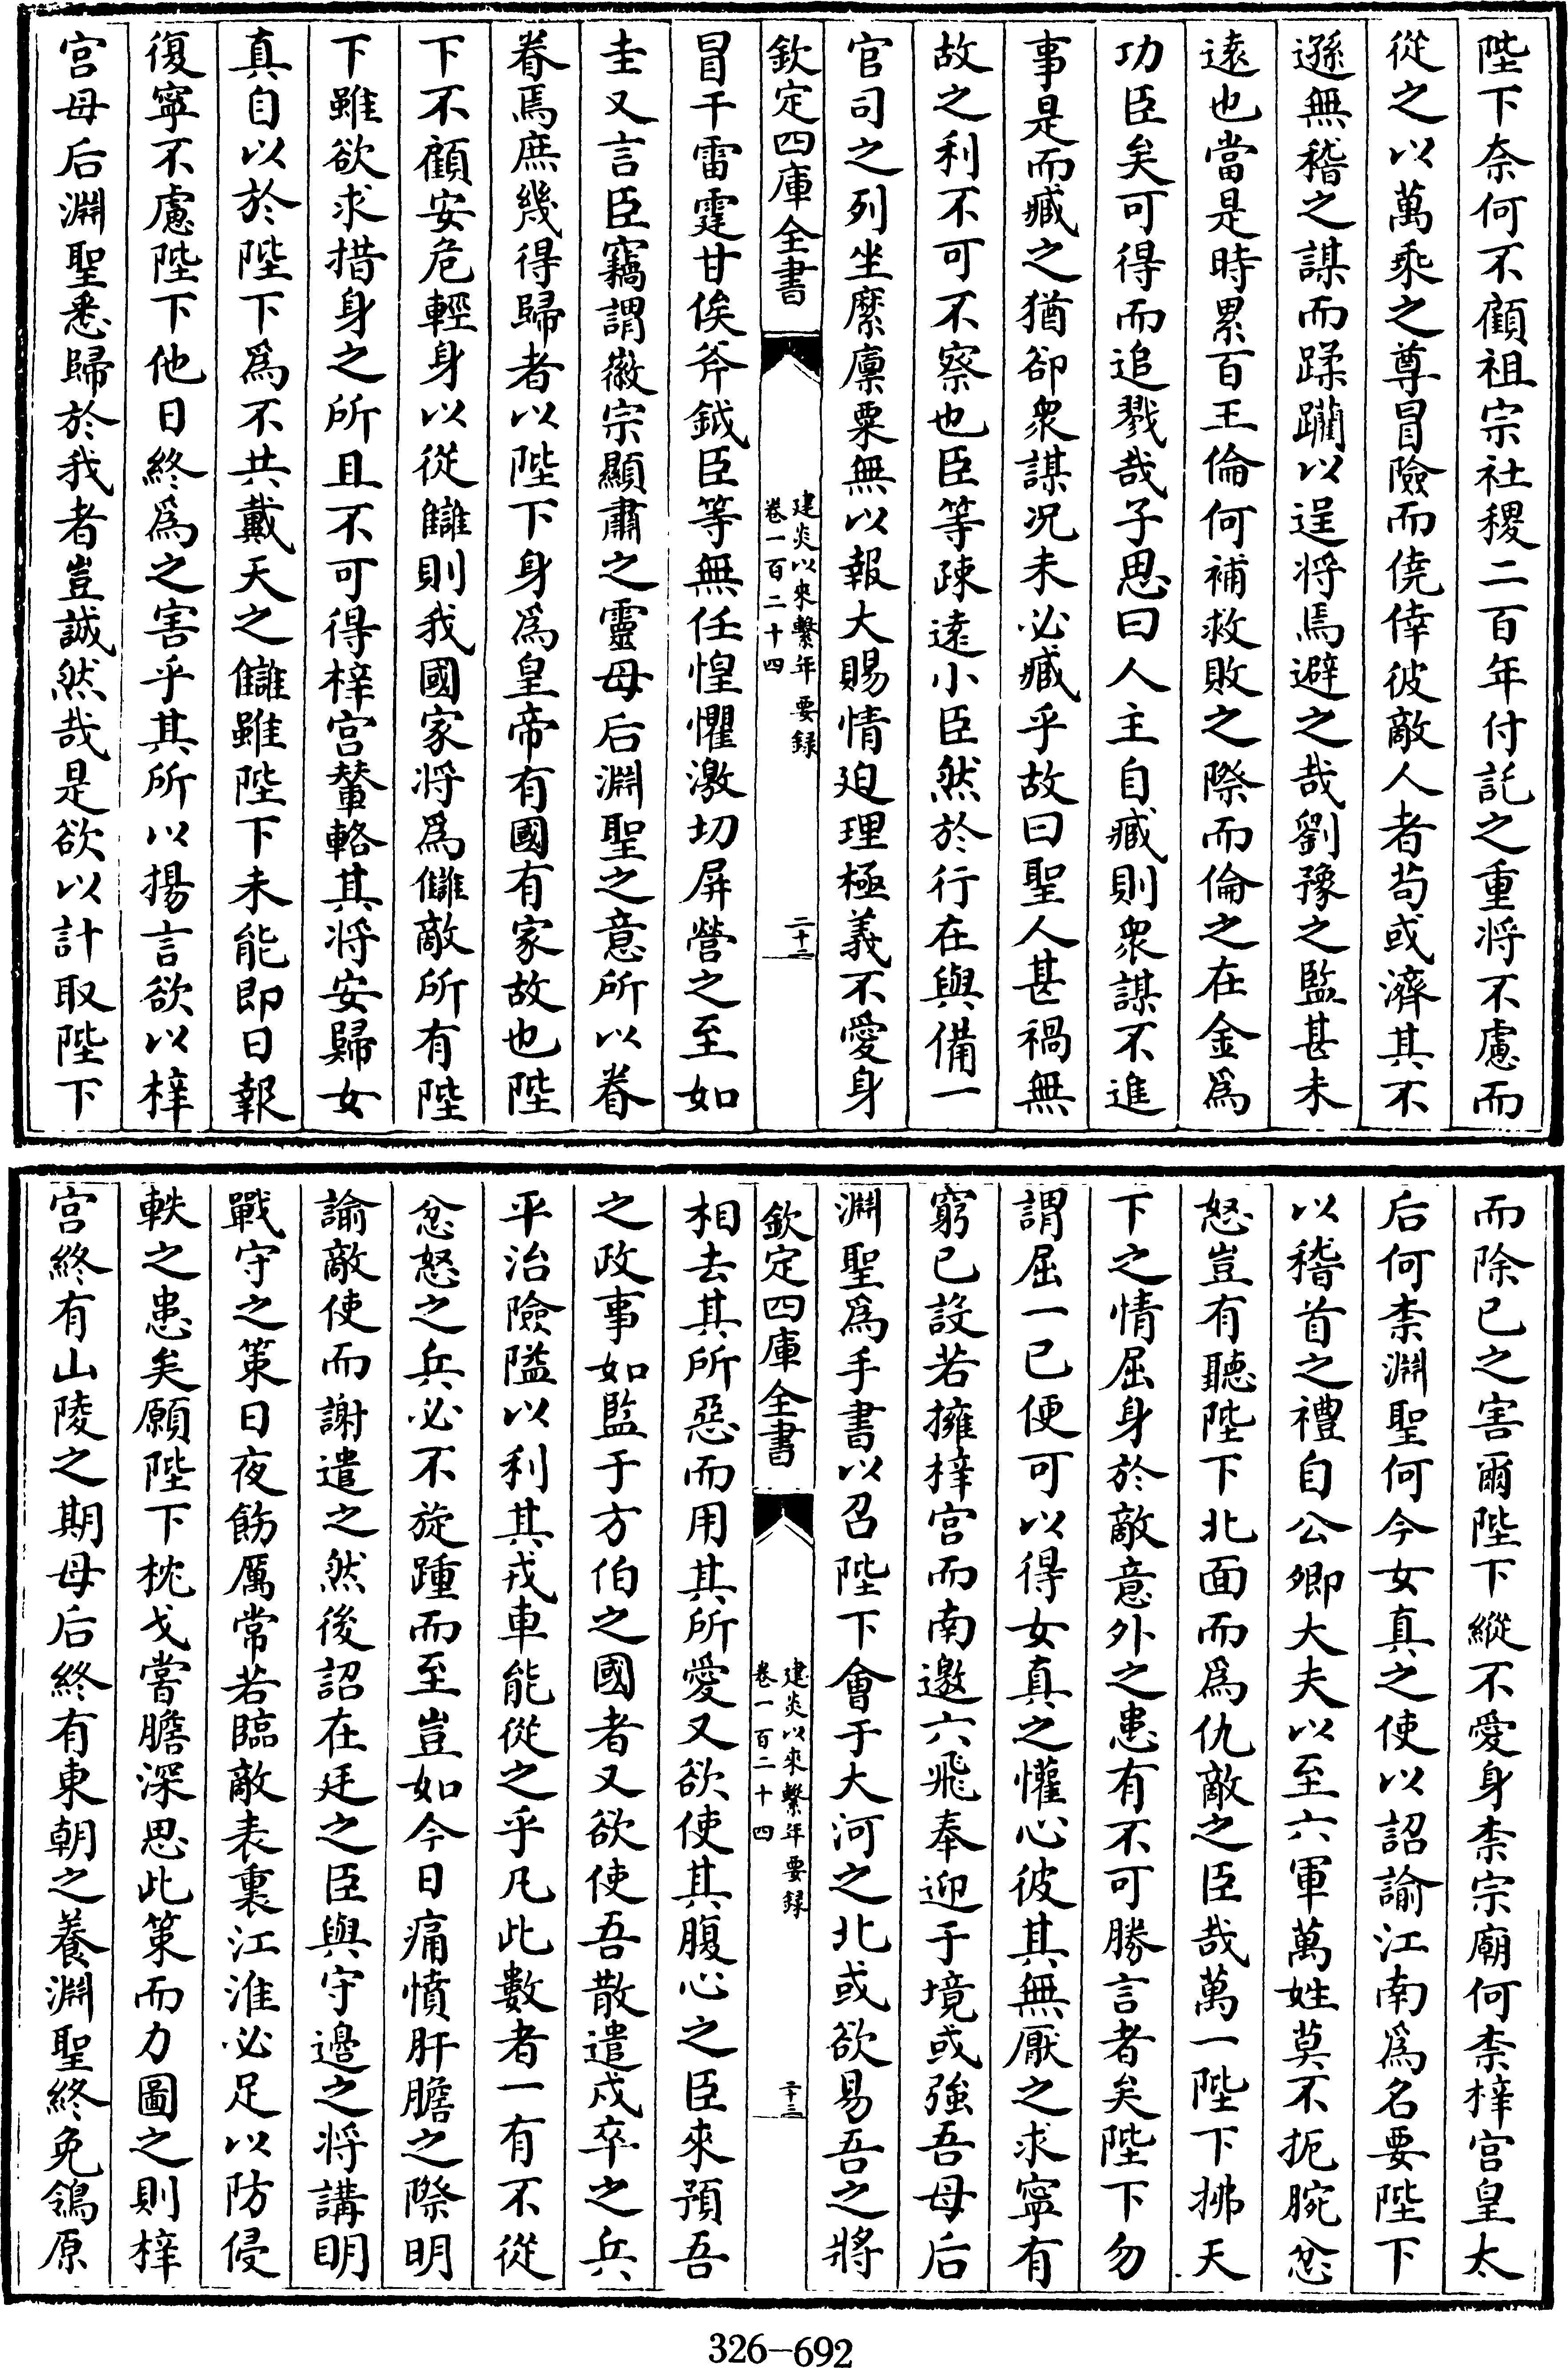 陛下奈何不顧祖宗社稷二百年付託之重將不慮而
從之以萬乘之尊冒險而僥倖彼敵人者苟或濟其不
遜無稽之謀而蹂躪以逞将焉避之哉劉豫之監甚未
遠也當是時累百王倫何補救敗之際而倫之在金為
功臣矣可得而追戮哉子思曰人主自臧則衆謀不進
事是而臧之猶卻衆謀况未必臧乎故曰聖人甚禍無
故之利不可不察也臣等疎逺小臣然於行在與備一
官司之列坐縻廩粟無以報大賜情廹理極義不愛身
欽定四庫全書
建炎以來繫年要録
卷一百二十四
二十二
冒干雷霆甘俟斧鉞臣等無任惶懼激切屏營之至如
圭又言臣竊謂徽宗顯肅之靈母后淵聖之意所以眷
眷焉庶幾得歸者以陛下身為皇帝有國有家故也陛
下不顧安危輕身以從讎則我國家将為讎敵所有陛
下雖欲求措身之所且不可得梓宫輦輅其将安歸女
真自以於陛下為不共戴天之讎雖陛下未能即日報
復寧不慮陛下他日終為之害乎其所以揚言欲以梓
宫母后淵聖悉歸於我者豈誠然哉是欲以計取陛下
而除已之害爾陛下縱不愛身柰宗廟何柰梓宫皇太
后何柰淵聖何今女真之使以詔諭江南為名要陛下
以稽首之禮自公卿大夫以至六軍萬姓莫不扼腕忿
怒豈有聽陛下北面而為仇敵之臣哉萬一陛下拂天
下之情屈身於敵意外之患有不可勝言者矣陛下勿
謂屈一已便可以得女真之懽心彼其無厭之求寧有
窮已設若擁梓宫而南邀六飛奉迎于境或強吾母后
淵聖為手書以召陛下會于大河之北或欲易吾之將
欽定四庫全書
建炎以來繫年要録
卷一百二十四
二十三
相去其所惡而用其所愛又欲使其腹心之臣來預吾
之政事如監于方伯之國者又欲使吾散遣戍卒之兵
平治險隘以利其戎車能從之乎凡此數者一有不從
忿怒之兵必不旋踵而至豈如今日痛憤肝膽之際明
諭敵使而謝遣之然後詔在廷之臣與守邊之将講明
戰守之策日夜飭厲常若臨敵表裏江淮必足以防侵
軼之患矣願陛下枕戈嘗膽深思此策而力圖之則梓
宫終有山陵之期母后終有東朝之養淵聖終免鴒原
326-692